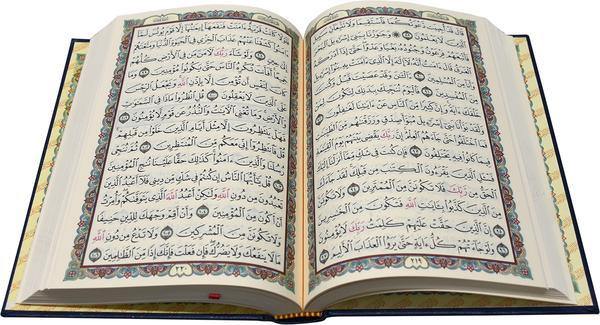 قَالَ قَدْ أُجِيبَت دَّعْوَتُكُمَا فَٱسْتَقِيمَا وَلَا تَتَّبِعَآنِّ
سَبِيلَ ٱلَّذِينَ لَا يَعْلَمُونَ ٨٩ ۞ وَجَٰوَزْنَا بِبَنِىٓ إِسْرَٰٓءِيلَ
ٱلْبَحْرَ فَأَتْبَعَهُمْ فِرْعَوْنُ وَجُنُودُهُۥ بَغْيًا وَعَدْوًا ۖ حَتَّىٰٓ إِذَآ أَدْرَكَهُ
ٱلْغَرَقُ قَالَ ءَامَنتُ أَنَّهُۥ لَآ إِلَٰهَ إِلَّا ٱلَّذِىٓ ءَامَنَتْ بِهِۦ بَنُوٓا۟ إِسْرَٰٓءِيلَ وَأَنَا۠
مِنَ ٱلْمُسْلِمِينَ ٩٠ ءَآلْـَٰٔنَ وَقَدْ عَصَيْتَ قَبْلُ وَكُنتَ مِنَ
ٱلْمُفْسِدِينَ ٩١ فَٱلْيَوْمَ نُنَجِّيكَ بِبَدَنِكَ لِتَكُونَ لِمَنْ
خَلْفَكَ ءَايَةً ۚ وَإِنَّ كَثِيرًا مِّنَ ٱلنَّاسِ عَنْ ءَايَٰتِنَا لَغَٰفِلُونَ ٩٢
وَلَقَدْ بَوَّأْنَا بَنِىٓ إِسْرَٰٓءِيلَ مُبَوَّأَ صِدْقٍ وَرَزَقْنَٰهُم مِّنَ
ٱلطَّيِّبَٰتِ فَمَا ٱخْتَلَفُوا۟ حَتَّىٰ جَآءَهُمُ ٱلْعِلْمُ ۚ إِنَّ رَبَّكَ يَقْضِى بَيْنَهُمْ يَوْمَ
ٱلْقِيَٰمَةِ فِيمَا كَانُوا۟ فِيهِ يَخْتَلِفُونَ ٩٣ فَإِن كُنتَ فِى شَكٍّ مِّمَّآ أَنزَلْنَآ إِلَيْكَ
فَسْـَٔلِ ٱلَّذِينَ يَقْرَءُونَ ٱلْكِتَٰبَ مِن قَبْلِكَ ۚ لَقَدْ جَآءَكَ
ٱلْحَقُّ مِن رَّبِّكَ فَلَا تَكُونَنَّ مِنَ ٱلْمُمْتَرِينَ ٩٤ وَلَا تَكُونَنَّ
مِنَ ٱلَّذِينَ كَذَّبُوا۟ بِـَٔايَٰتِ ٱللَّهِ فَتَكُونَ مِنَ ٱلْخَٰسِرِينَ ٩٥
إِنَّ ٱلَّذِينَ حَقَّتْ عَلَيْهِمْ كَلِمَتُ رَبِّكَ لَا يُؤْمِنُونَ ٩٦
وَلَوْ جَآءَتْهُمْ كُلُّ ءَايَةٍ حَتَّىٰ يَرَوُا۟ ٱلْعَذَابَ ٱلْأَلِيمَ ٩٧
٢١٩
فَلَوْلَا كَانَتْ قَرْيَةٌ ءَامَنَتْ فَنَفَعَهَآ إِيمَٰنُهَآ إِلَّا قَوْمَ يُونُسَ لَمَّآ
ءَامَنُوا۟ كَشَفْنَا عَنْهُمْ عَذَابَ ٱلْخِزْىِ فِى ٱلْحَيَوٰةِ ٱلدُّنْيَا وَمَتَّعْنَٰهُمْ
إِلَىٰ حِينٍ ٩٨ وَلَوْ شَآءَ رَبُّكَ لَءَامَنَ مَن فِى ٱلْأَرْضِ كُلُّهُمْ
جَمِيعًا ۚ أَفَأَنتَ تُكْرِهُ ٱلنَّاسَ حَتَّىٰ يَكُونُوا۟ مُؤْمِنِينَ ٩٩
وَمَا كَانَ لِنَفْسٍ أَن تُؤْمِنَ إِلَّا بِإِذْنِ ٱللَّهِ ۚ وَيَجْعَلُ ٱلرِّجْسَ
عَلَى ٱلَّذِينَ لَا يَعْقِلُونَ ١٠٠ قُلِ ٱنظُرُوا۟ مَاذَا فِى ٱلسَّمَٰوَٰتِ
وَٱلْأَرْضِ ۚ وَمَا تُغْنِى ٱلْـَٔايَٰتُ وَٱلنُّذُرُ عَن قَوْمٍ لَّا يُؤْمِنُونَ ١٠١
فَهَلْ يَنتَظِرُونَ إِلَّا مِثْلَ أَيَّامِ ٱلَّذِينَ خَلَوْا۟ مِن قَبْلِهِمْ ۚ
قُلْ فَٱنتَظِرُوٓا۟ إِنِّى مَعَكُم مِّنَ ٱلْمُنتَظِرِينَ ١٠٢ ثُمَّ نُنَجِّى
رُسُلَنَا وَٱلَّذِينَ ءَامَنُوا۟ ۚ كَذَٰلِكَ حَقًّا عَلَيْنَا نُنجِ ٱلْمُؤْمِنِينَ
١٠٣ قُلْ يَٰٓأَيُّهَا ٱلنَّاسُ إِن كُنتُمْ فِى شَكٍّ مِّن دِينِى فَلَآ أَعْبُدُ ٱلَّذِينَ
تَعْبُدُونَ مِن دُونِ ٱللَّهِ وَلَٰكِنْ أَعْبُدُ ٱللَّهَ ٱلَّذِى يَتَوَفَّىٰكُمْ ۖ وَأُمِرْتُ
أَنْ أَكُونَ مِنَ ٱلْمُؤْمِنِينَ ١٠٤ وَأَنْ أَقِمْ وَجْهَكَ لِلدِّينِ حَنِيفًا
وَلَا تَكُونَنَّ مِنَ ٱلْمُشْرِكِينَ ١٠٥ وَلَا تَدْعُ مِن دُونِ ٱللَّهِ
مَا لَا يَنفَعُكَ وَلَا يَضُرُّكَ ۖ فَإِن فَعَلْتَ فَإِنَّكَ إِذًا مِّنَ ٱلظَّٰلِمِينَ ١٠٦
٢٢٠